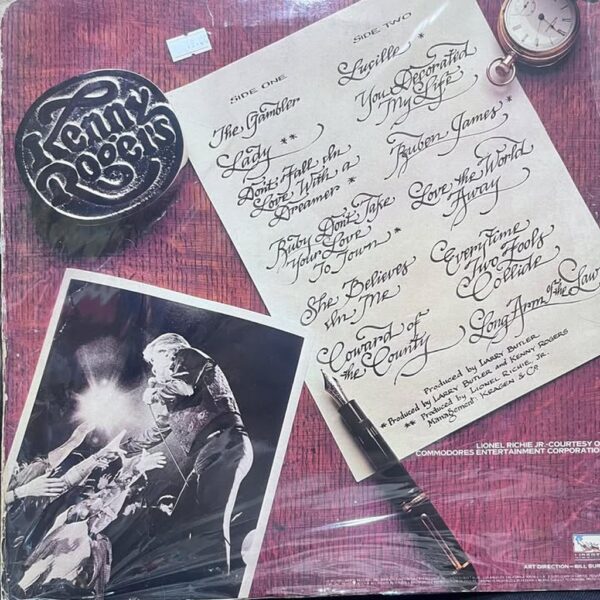 Kenny
Rogers
SIDE ONE
The Gambler
Lady **
Don't Fall In
Love With a
Dreamer *
Ruby Don't Take
Your Love
To Town *
She Believes
In Me
Coward of
the County
SIDE TWO
Lucille *
You Decorated
My Life
Reuben James *
Love the World
Away
Everytime
Two Fools
Collide
Long Arm of the Law
Produced by LARRY BUTLER
* Produced by LARRY BUTLER and KENNY ROGERS
** Produced by LIONEL RICHIE, JR.
Management: KRAGEN & CO
LIONEL RICHIE JR.-COURTESY O
COMMODORES ENTERTAINMENT CORPORATIO
LIBERTY
ART DIRECTION—BILL BUR